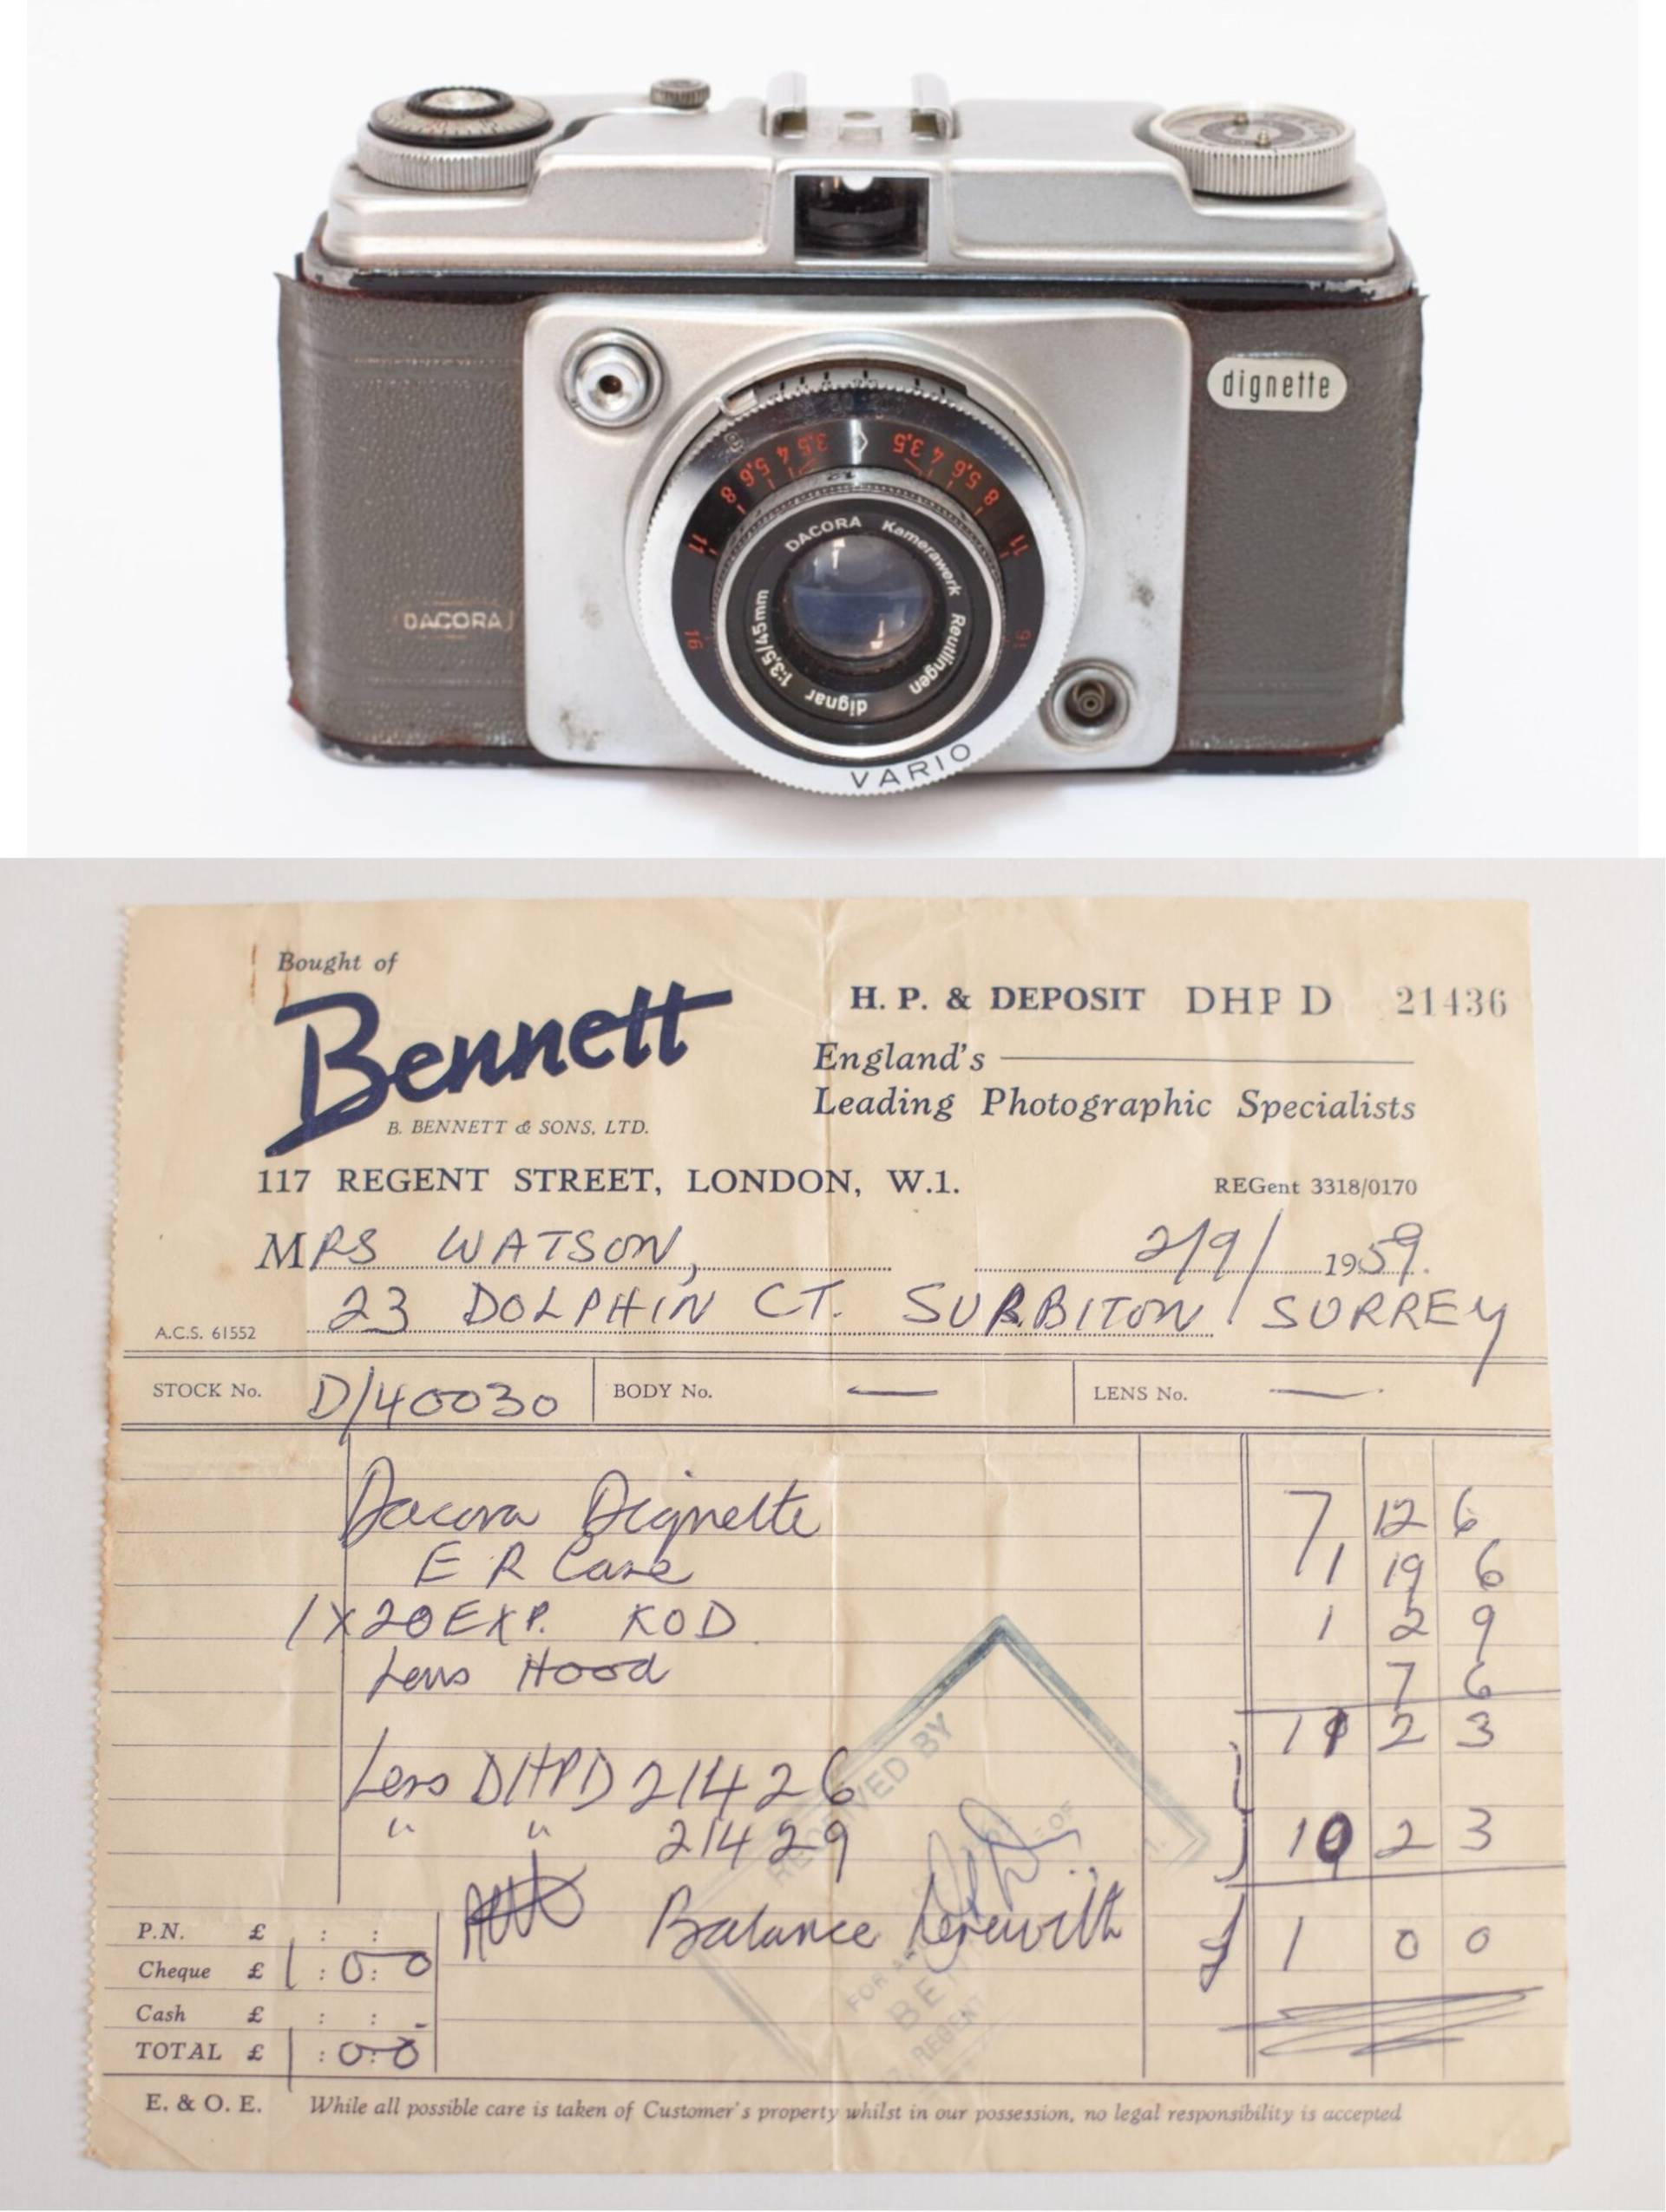 dignette
3,5 4 5,6 8 11 16
3,5 4 5,6 8 11 16
DACORA Kamerawerk Reutlingen dignar 1:3,5/45mm
DACORA
VARIO
Bought of
Bennett
B. BENNETT & SONS, LTD.
H. P. & DEPOSIT DHP D 21436
England's
Leading Photographic Specialists
117 REGENT STREET, LONDON, W.1.
REGent 3318/0170
MRS WATSON, 2/9/1959.
23 DOLPHIN CT. SURBITON SURREY
A.C.S. 61552
STOCK No. D/40030 BODY No. — LENS No. —
Dacora Dignette 7 12 6
E R Case 1 19 6
1X20EXP. KOD 1 2 9
Lens Hood 7 6
11 2 3
Less DHPD 21426
" " 21429 10 2 3
Balance herewith £ 1 0 0
RECEIVED BY
P.N. £ : :
Cheque £ 1:0:0
Cash £ : : -
TOTAL £ 1:0:0
E. & O. E. While all possible care is taken of Customer's property whilst in our possession, no legal responsibility is accepted